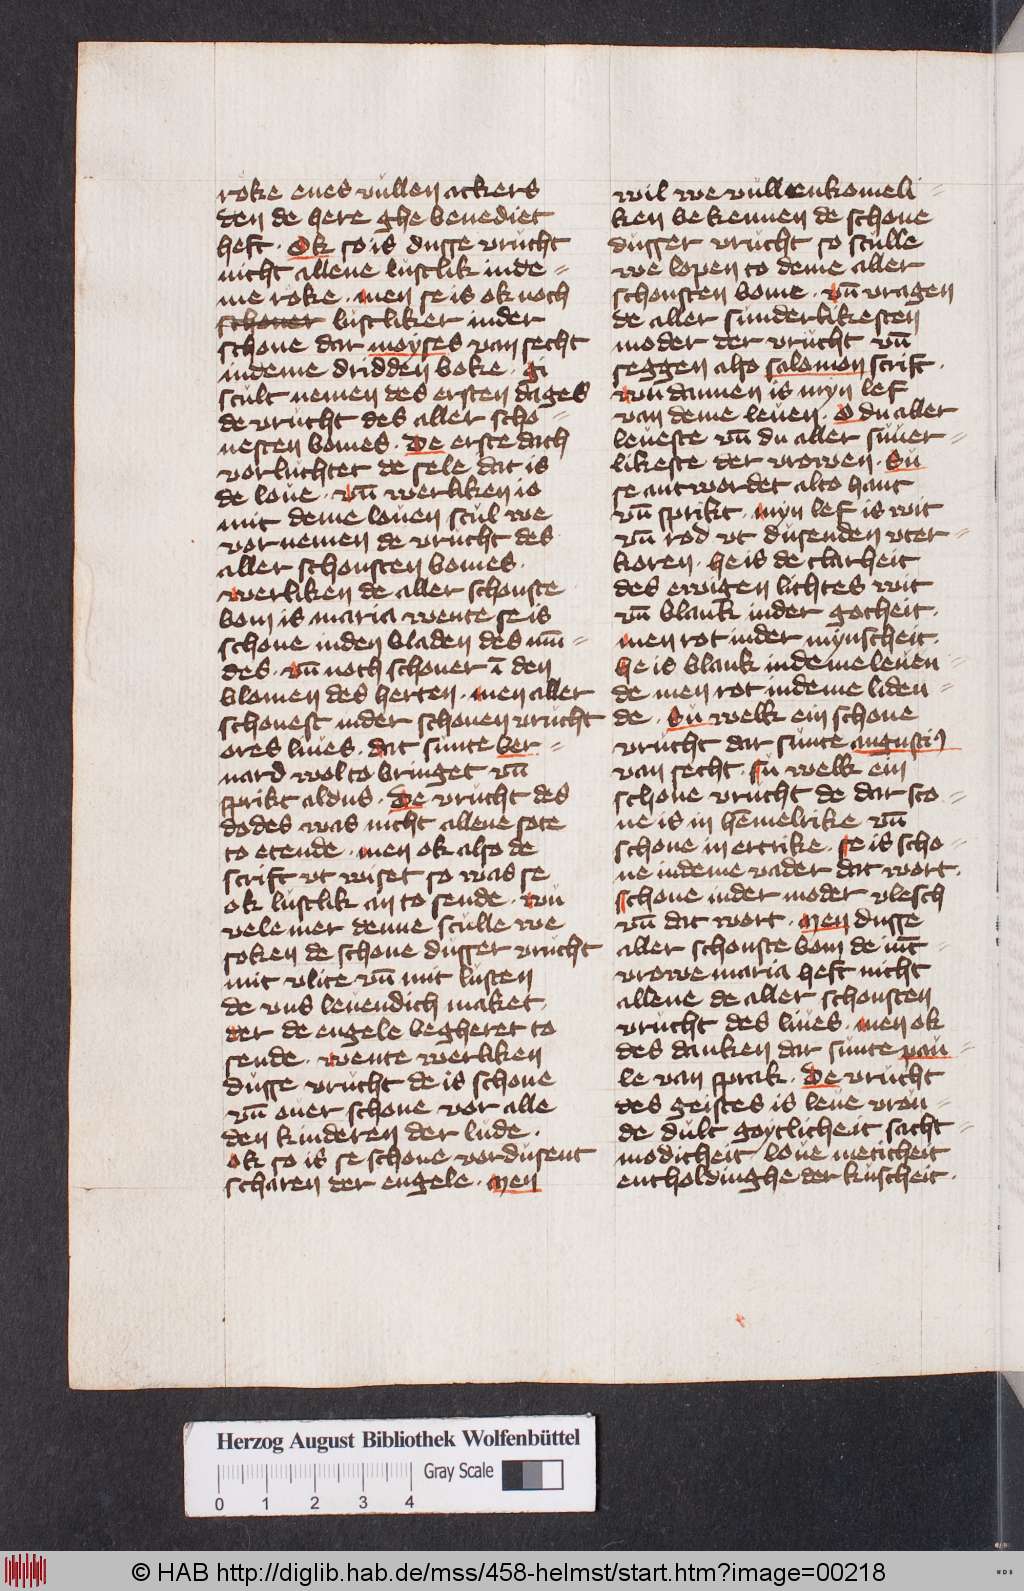 roke enes vullen ackers
den de here ghe benediet
heft · Ok so is dusse vrucht
nicht allene lustlik in de =
me roke · men se is ok noch
schoner lustliker in der
schone dar moyses van secht
in deme dridden boke · gi
scult nemen des ersten dages
de vrucht des aller scho =
nesten bomes · De erste dach
vorluchtet de sele dat is
de loue · vn̄ werliken io
mit deme louen scul we
vornemen de vrucht des
aller schonsten bomes ·
werliken de aller schonste
bom is maria wente se is
schone in den bladen des mū =
des · vn̄ noch schoner ī den
blomen des herten · men aller
schonest in der schonen vrucht
ores liues · dat sunte ber =
nard wol to bringet vn̄
sprikt aldus · De vrucht des
dodes was nicht allene sote
to etende · men ok also de
scrift vt wiset so was se
ok lustlik an to sende · wu
vele mer denne sculle we
soken de schone dusser vrucht
mit vlite vn̄ mit lusten
de vns leuendich maket ·
der de engele begheret to
sende · wente werliken
dusse vrucht de is schone
vn̄ ouer schone vor alle
den kinderen der lude ·
ok so is se schone vor dusent
scharen der engele · Men
wil we vullenkomeli =
ken bekennen de schone
dusser vrucht so sculle
we lopen to deme aller
schonsten bome · vn̄ vragen
de aller sunderlikesten
moder der vrucht vn̄
seggen also salomon scrift ·
wu dannen is myn lef
van deme leuen · O du aller
leueste vn̄ du aller suuer =
likeste der vrowen · Su
se antwordet alto hant
vn̄ sprikt · myn lef is wit
vn̄ rod vt dusenden vter =
koren · he is de clarheit
des ewigen lichtes wit
vn̄ blank in der gotheit ·
men rot in der mynscheit ·
he is blank in deme leuen =
de men rot in deme liden =
de · Su welk ein schone
vrucht dar sunte augustiꝰ
van secht · su welk ein
schone vrucht de dar sco =
ne is in hēmelrike vn̄
schone in ertrike · se is scho =
ne in deme vader dat wort ·
schone in der moder vlesch
vn̄ dat wort · Men dusse
aller schonste bom de iūc =
vrowe maria heft nicht
allene de aller schonsten
vrucht des liues · men ok
des danken dar sunte pau =
le van sprak · De vrucht
des geistes is leue vrou =
de dult goytlicheit sacht =
modicheit loue meticheit
entholdinghe der kuscheit ·
Herzog August Bibliothek Wolfenbüttel
0 1 2 3 4
Gray Scale
© HAB http://diglib.hab.de/mss/458-helmst/start.htm?image=00218